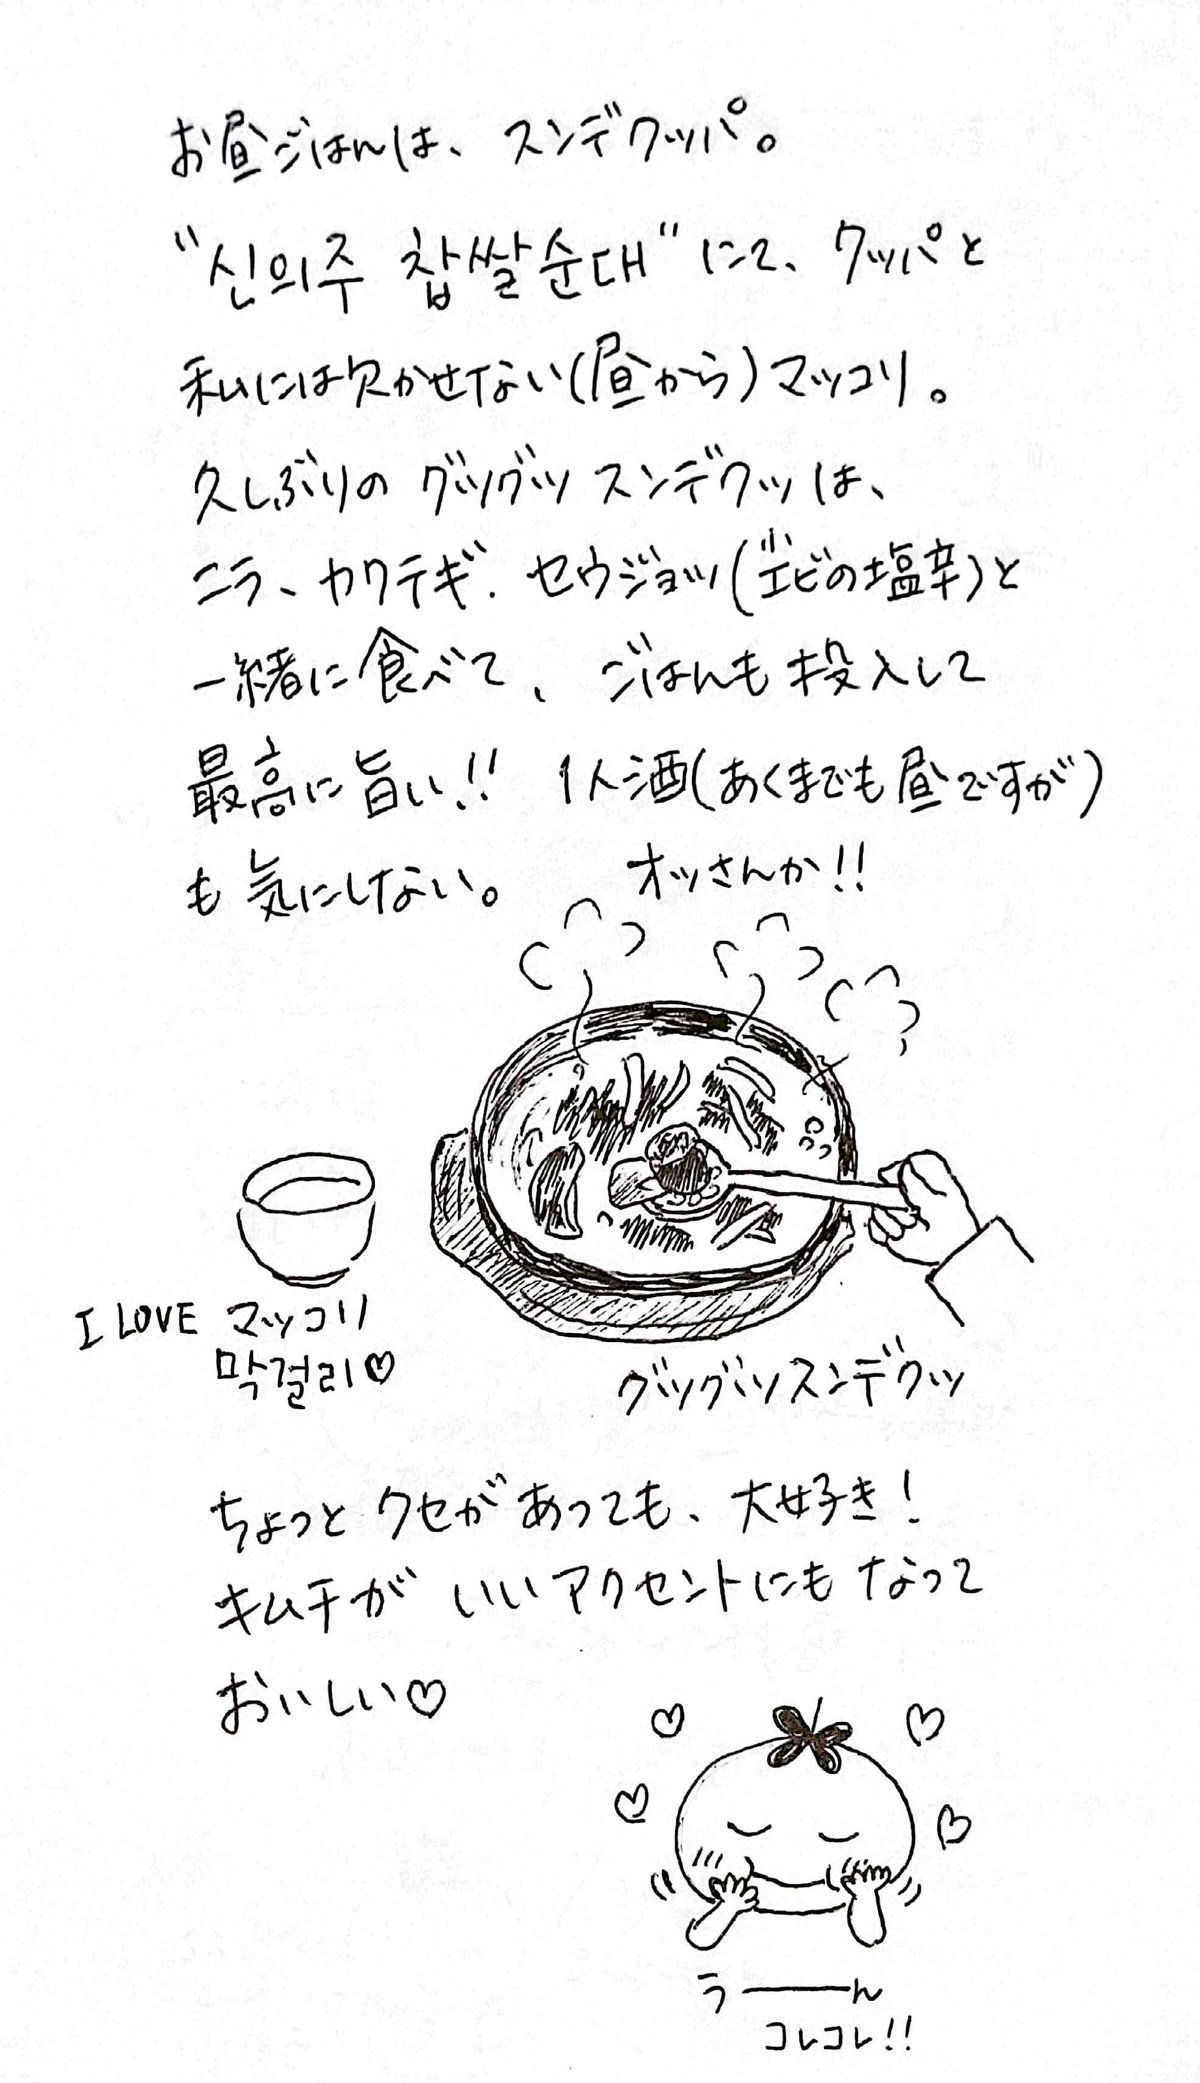 お昼ごはんは、スンデクッパ。
"신의주 찹쌀순대"にて、クッパと
私には欠かせない(昼から)マッコリ。
久しぶりのグツグツスンデクッは、
ニラ、カクテギ、セウジョッ(小エビの塩辛)と
一緒に食べて、ごはんも投入して
最高に旨い!! 1人酒(あくまでも昼ですが)
も気にしない。 オッさんか!!
I LOVE マッコリ
막걸리♡
グツグツスンデクッ
ちょっとクセがあっても、大好き!
キムチがいいアクセントにもなって
おいしい♡
うーーん
コレコレ!!